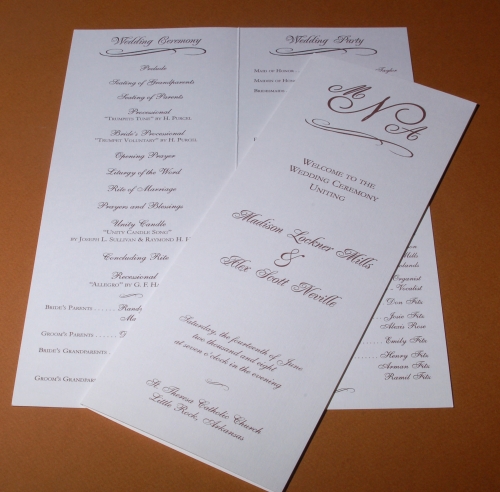 Wedding Ceremony
Prelude
Seating of Grandparents
Seating of Parents
Processional
"Trumpten Tune" by H. Purcel
Bride's Processional
"Trumpet Voluntary" by H. Purcel
Opening Prayer
Liturgy of the Word
Rite of Marriage
Prayers and Blessings
Unity Candle
"Unity Candle Song"
by Joseph L. Sullivan & Raymond H.
Concluding Rite
Recessional
"Allegro" by G. F.
Bride's Parents
Groom's Parents
Bride's Grandparents
Groom's Grandparents
Wedding Party
Maid of Honor
Matron of Hon
Bridesmaids
Organist
Vocalist
Don Fits
Josie Fits
Alexis Rose
Emily Fits
Henry Fits
Arman Fits
Ramil Fits
M N A
Welcome to the
Wedding Ceremony
Uniting
Madison Lockner Mills
&
Alex Scott Neville
Saturday, the fourteenth of June
two thousand and eight
at seven o'clock in the evening
St. Theresa Catholic Church
Little Rock, Arkansas